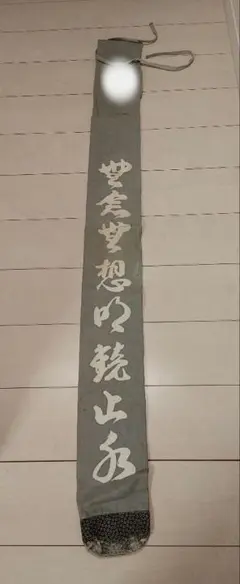 無念無想明鏡止水